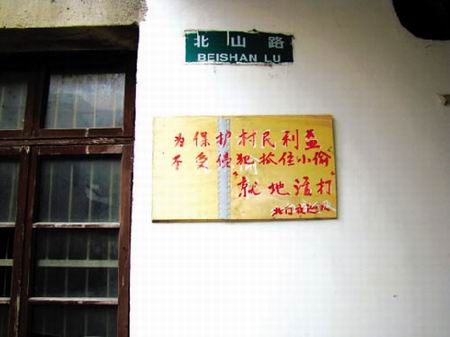 北山路
BEISHAN LU
为保护村民利益
不受侵犯抓住小偷
"就地活打"
北门夜巡队